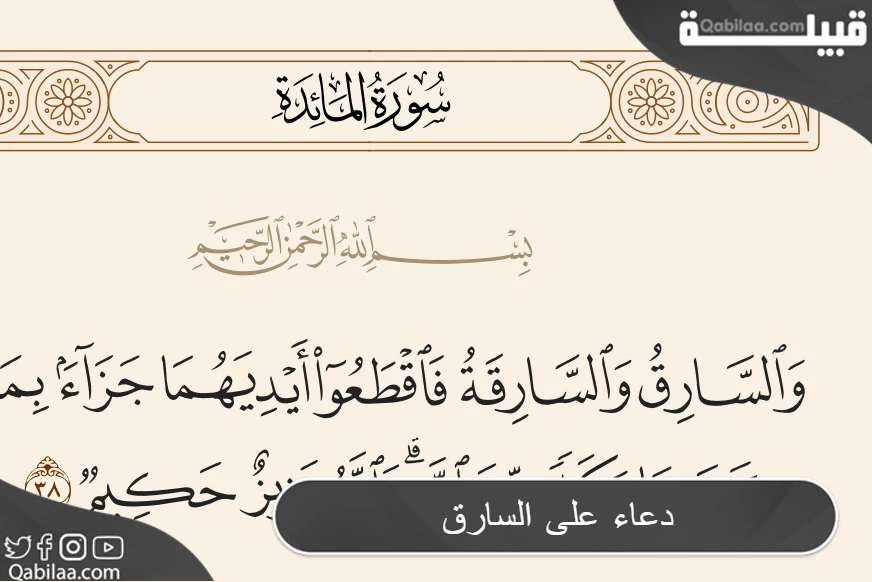 قبيلة
Qabilaa.com
سُورَةُ المَائِدَةِ
بِسْمِ ٱللَّهِ ٱلرَّحْمَٰنِ ٱلرَّحِيمِ
وَٱلسَّارِقُ وَٱلسَّارِقَةُ فَٱقْطَعُوٓا۟ أَيْدِيَهُمَا جَزَآءًۢ بِمَا
حَكِيمٌ ٣٨
دعاء على السارق
Qabilaa.com